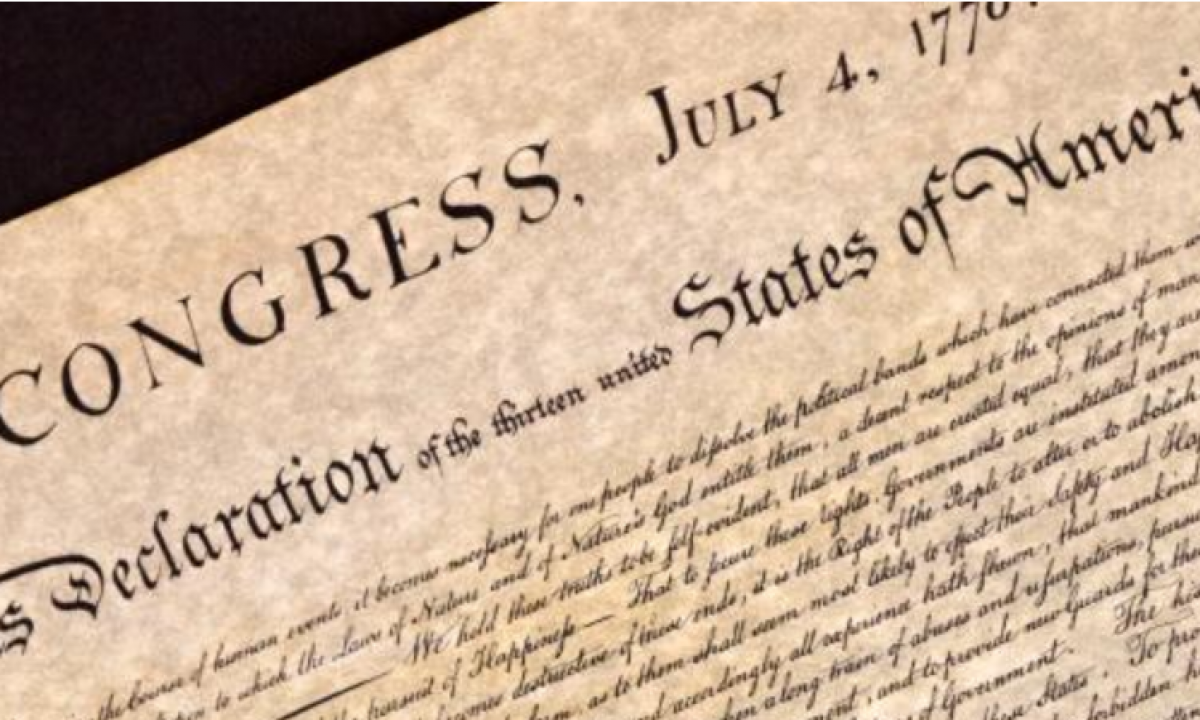 CONGRESS, JULY 4, 1776.
Declaration of the thirteen united States of Ameri
the Course of human events, it becomes necessary for one people to dissolve the political bands which have connected them
to which the Laws of Nature and of Nature's God entitle them, a decent respect to the opinions of man
We hold these truths to be self-evident, that all men are created equal, that they are
pursuit of Happiness— That to secure these rights, Governments are instituted among
becomes destructive of these ends, it is the Right of the People to alter or to abolish
as to them shall seem most likely to effect their Safety and Hap
accordingly all experience hath shewn, that mankind
when a long train of abuses and usurpations, pursu
and to provide new Guards for the
of Government. The his
these States. To pro
forbidden h